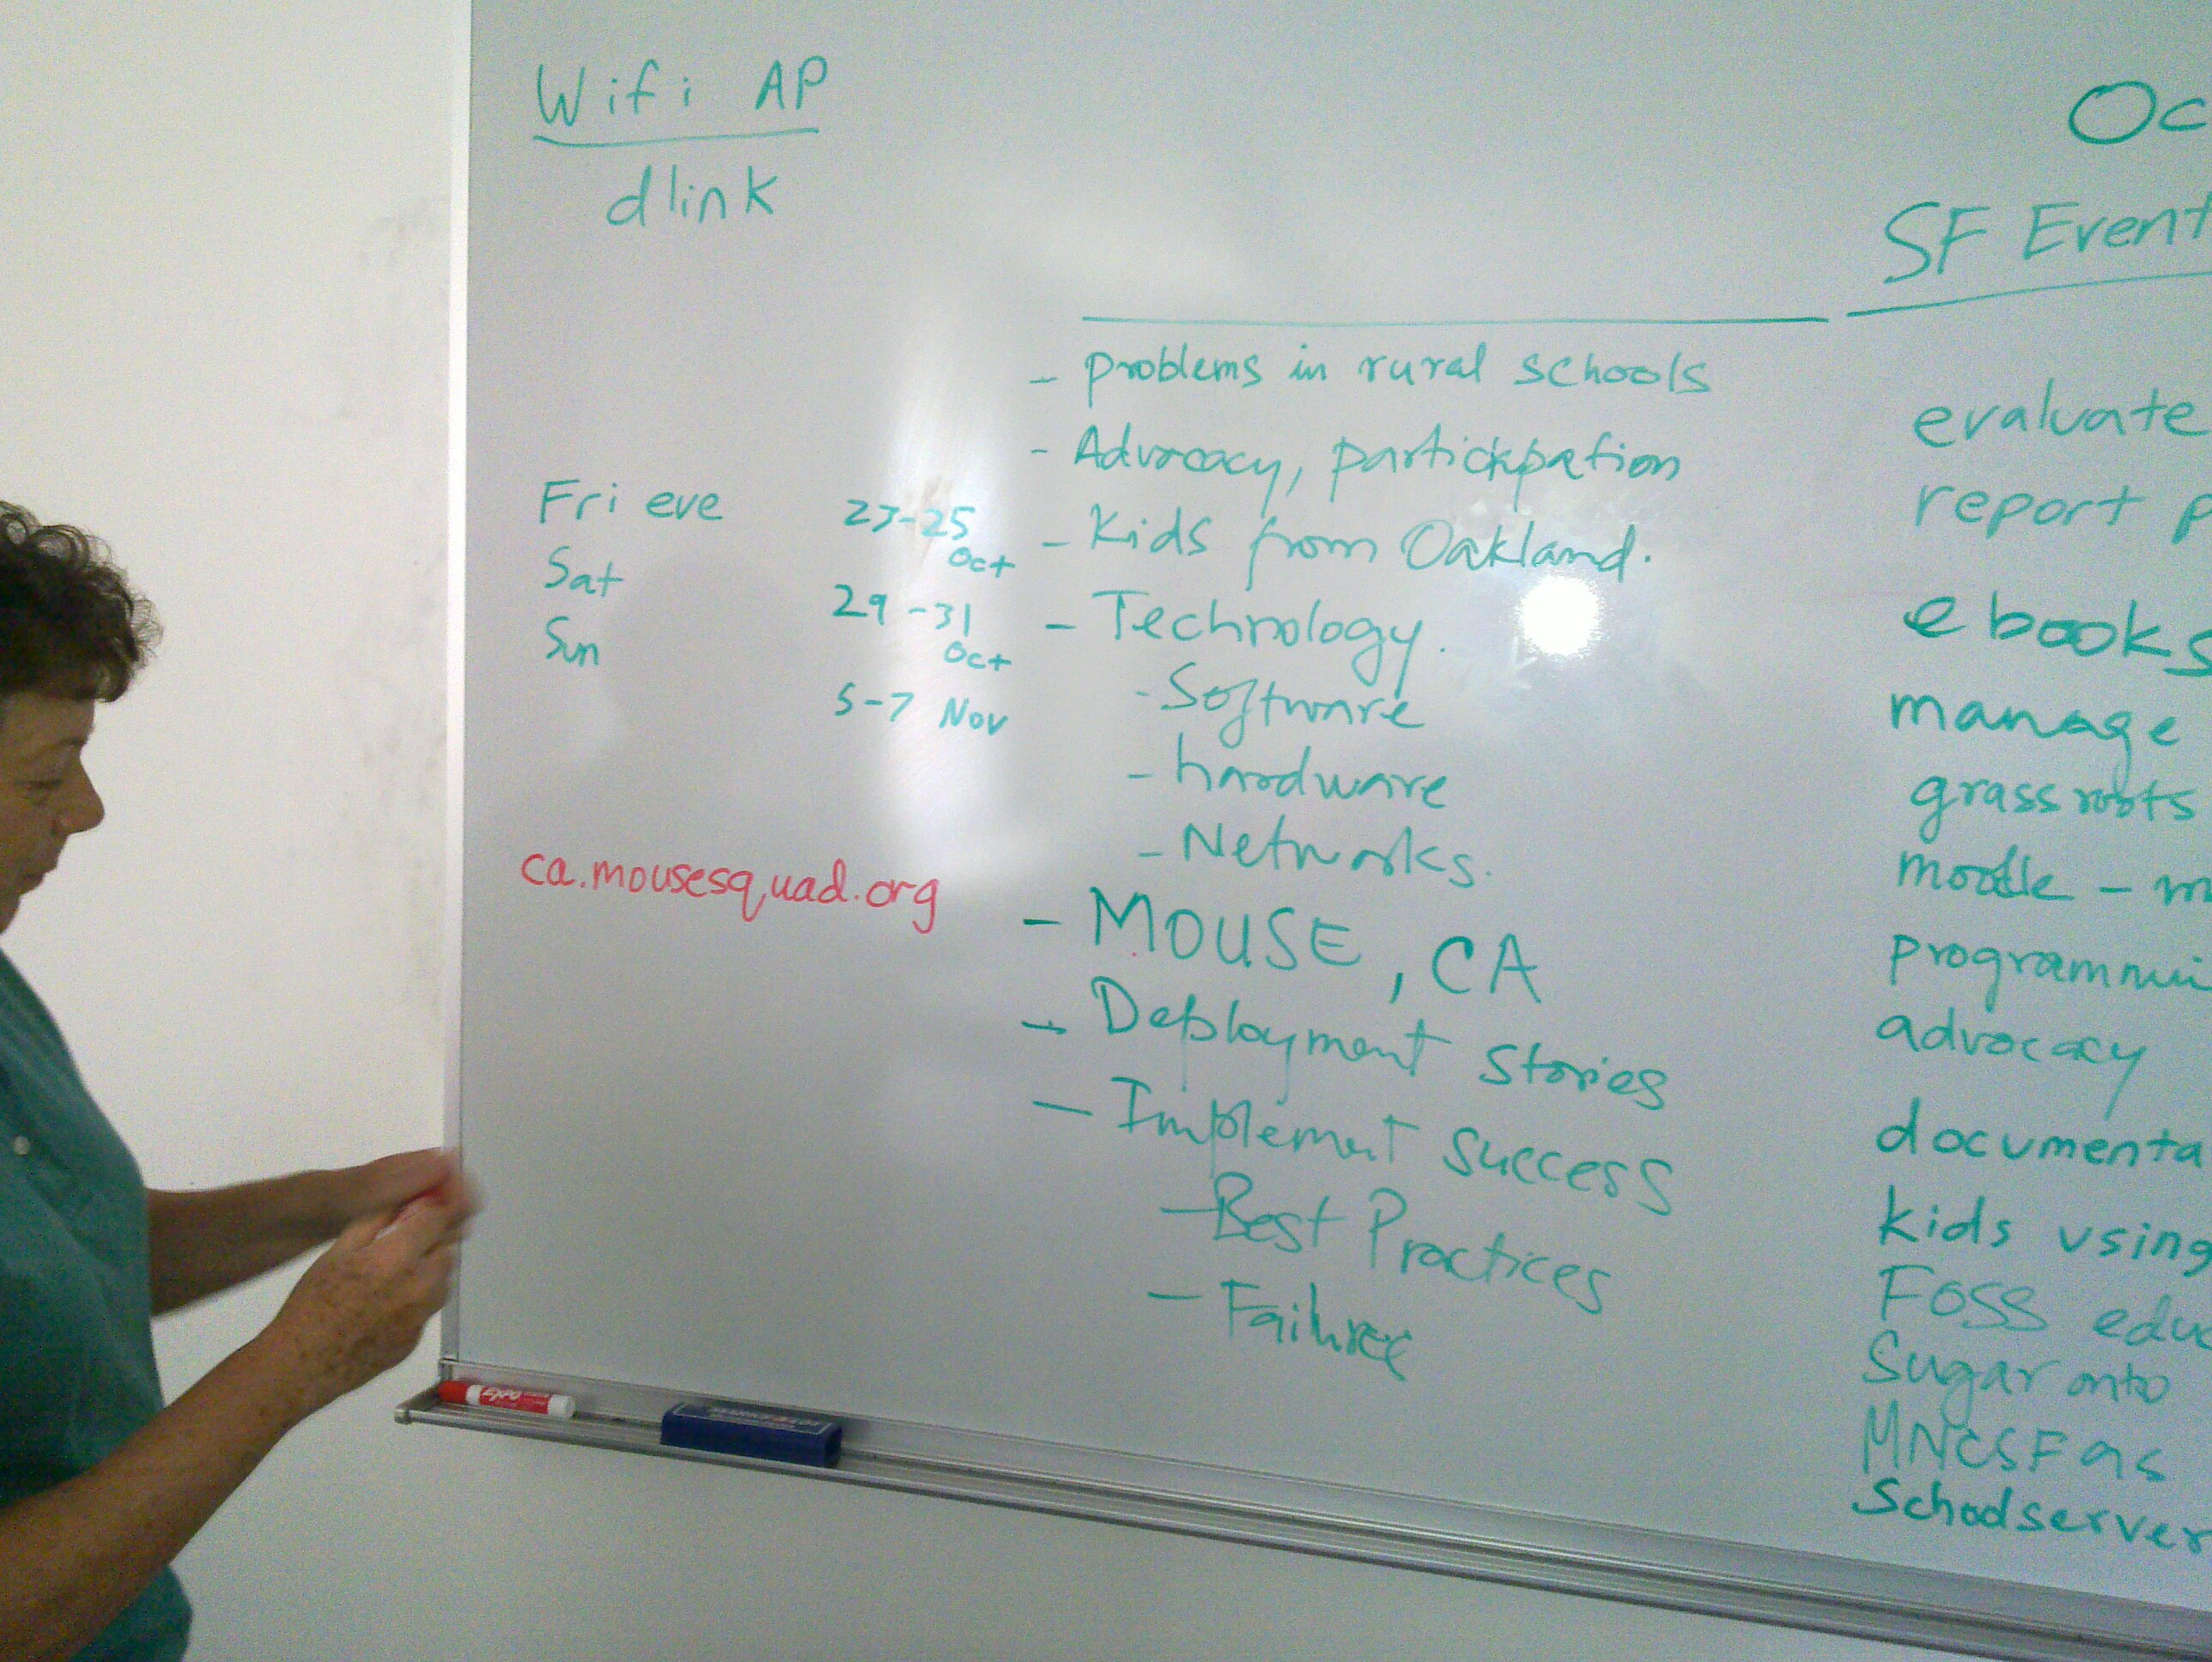 Wifi AP
dlink
Fri eve
Sat
Sun
23-25
Oct
29-31
Oct
5-7 Nov
ca.mousesquad.org
- problems in rural schools
- Advocacy, participation
- Kids from Oakland.
- Technology.
- Software
- hardware
- Networks.
- MOUSE, CA
- Deployment stories
- Implement success
- Best Practices
- Failures
OC
SF Event
evaluate
report p
ebooks
manage
grassroots
moodle - m
programmi
advocacy
documenta
kids using
FOSS edu
Sugar onto
MNCSF as
Schoolserver
EXPO